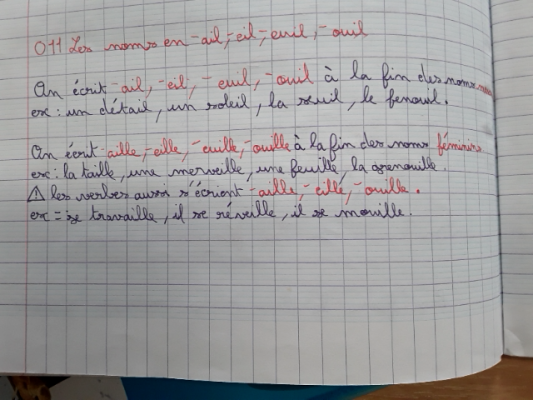 O11 Les noms en -ail, -eil, -euil, -ouil
On écrit -ail, -eil, -euil, -ouil à la fin des noms
ex : un détail, un soleil, la seuil, le fenouil.
On écrit -aille, -eille, -euille, -ouille à la fin des noms féminins
ex : la taille, une merveille, une feuille, la grenouille.
⚠ les verbes aussi s'écrivent -aille, -eille, -ouille.
ex = je travaille, il se réveille, il se mouille.